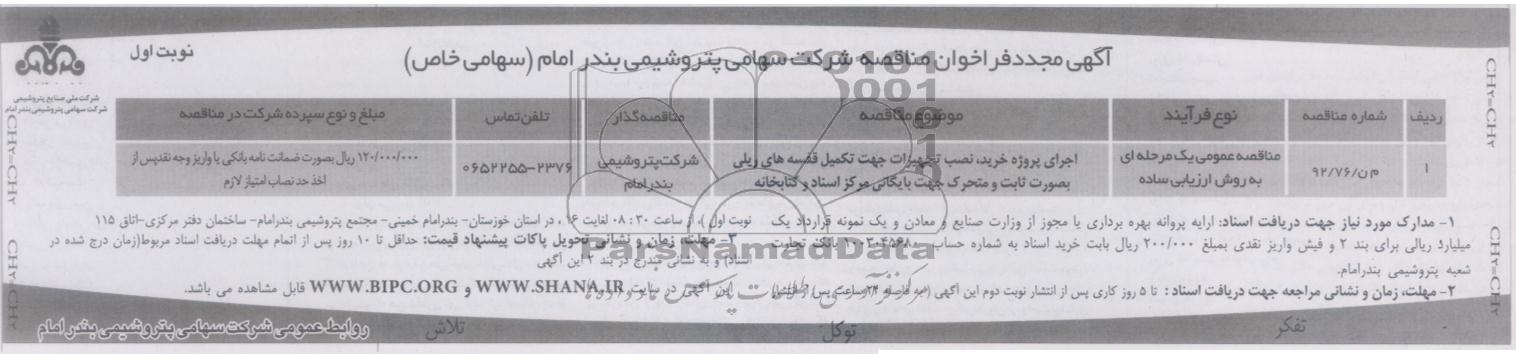 آگهی مجدد فراخوان مناقصه شرکت سهامی پتروشیمی بندر امام (سهامی خاص)
نوبت اول
شرکت ملی صنایع پتروشیمی
شرکت سهامی پتروشیمی بندر امام
ردیف شماره مناقصه نوع فرآیند موضوع مناقصه مناقصه گذار تلفن تماس مبلغ و نوع سپرده شرکت در مناقصه
۱ م ن/۹۲/۷۶ مناقصه عمومی یک مرحله ای به روش ارزیابی ساده اجرای پروژه خرید، نصب تجهیزات جهت تکمیل قفسه های ریلی بصورت ثابت و متحرک جهت بایگانی مرکز اسناد و کتابخانه شرکت پتروشیمی بندر امام ۰۶۵۲۲۵۵-۲۳۷۶ ۱۲۰/۰۰۰/۰۰۰ ریال بصورت ضمانت نامه بانکی یا واریز وجه نقد پس از اخذ حد نصاب امتیاز لازم
۱- مدارک مورد نیاز جهت دریافت اسناد: ارایه پروانه بهره برداری یا مجوز از وزارت صنایع و معادن و یک نمونه قرارداد یک
میلیارد ریالی برای بند ۲ و فیش واریز نقدی بمبلغ ۲۰۰/۰۰۰ ریال بابت خرید اسناد به شماره حساب بانک تجارت
شعبه پتروشیمی بندرامام.
۲- مهلت، زمان و نشانی مراجعه جهت دریافت اسناد: تا ۵ روز کاری پس از انتشار نوبت دوم این آگهی (به فاصله ۲۴ ساعت پس از انتشار
نوبت اول)، از ساعت ۰۸:۳۰ لغایت ۱۶، در استان خوزستان- بندرامام خمینی- مجتمع پتروشیمی بندرامام- ساختمان دفتر مرکزی-اتاق ۱۱۵
۳- مهلت، زمان و نشانی تحویل پاکات پیشنهاد قیمت: حداقل تا ۱۰ روز پس از اتمام مهلت دریافت اسناد مربوط(زمان درج شده در
اسناد) و به نشانی مندرج در بند ۲ این آگهی
این آگهی در سایت WWW.SHANA.IR و WWW.BIPC.ORG قابل مشاهده می باشد.
تفکر توکل تلاش
روابط عمومی شرکت سهامی پتروشیمی بندر امام
CH۲=CH۲
CH۲=CH۲
CH۲=CH۲
CH۲=CH۲
ParsNamadData